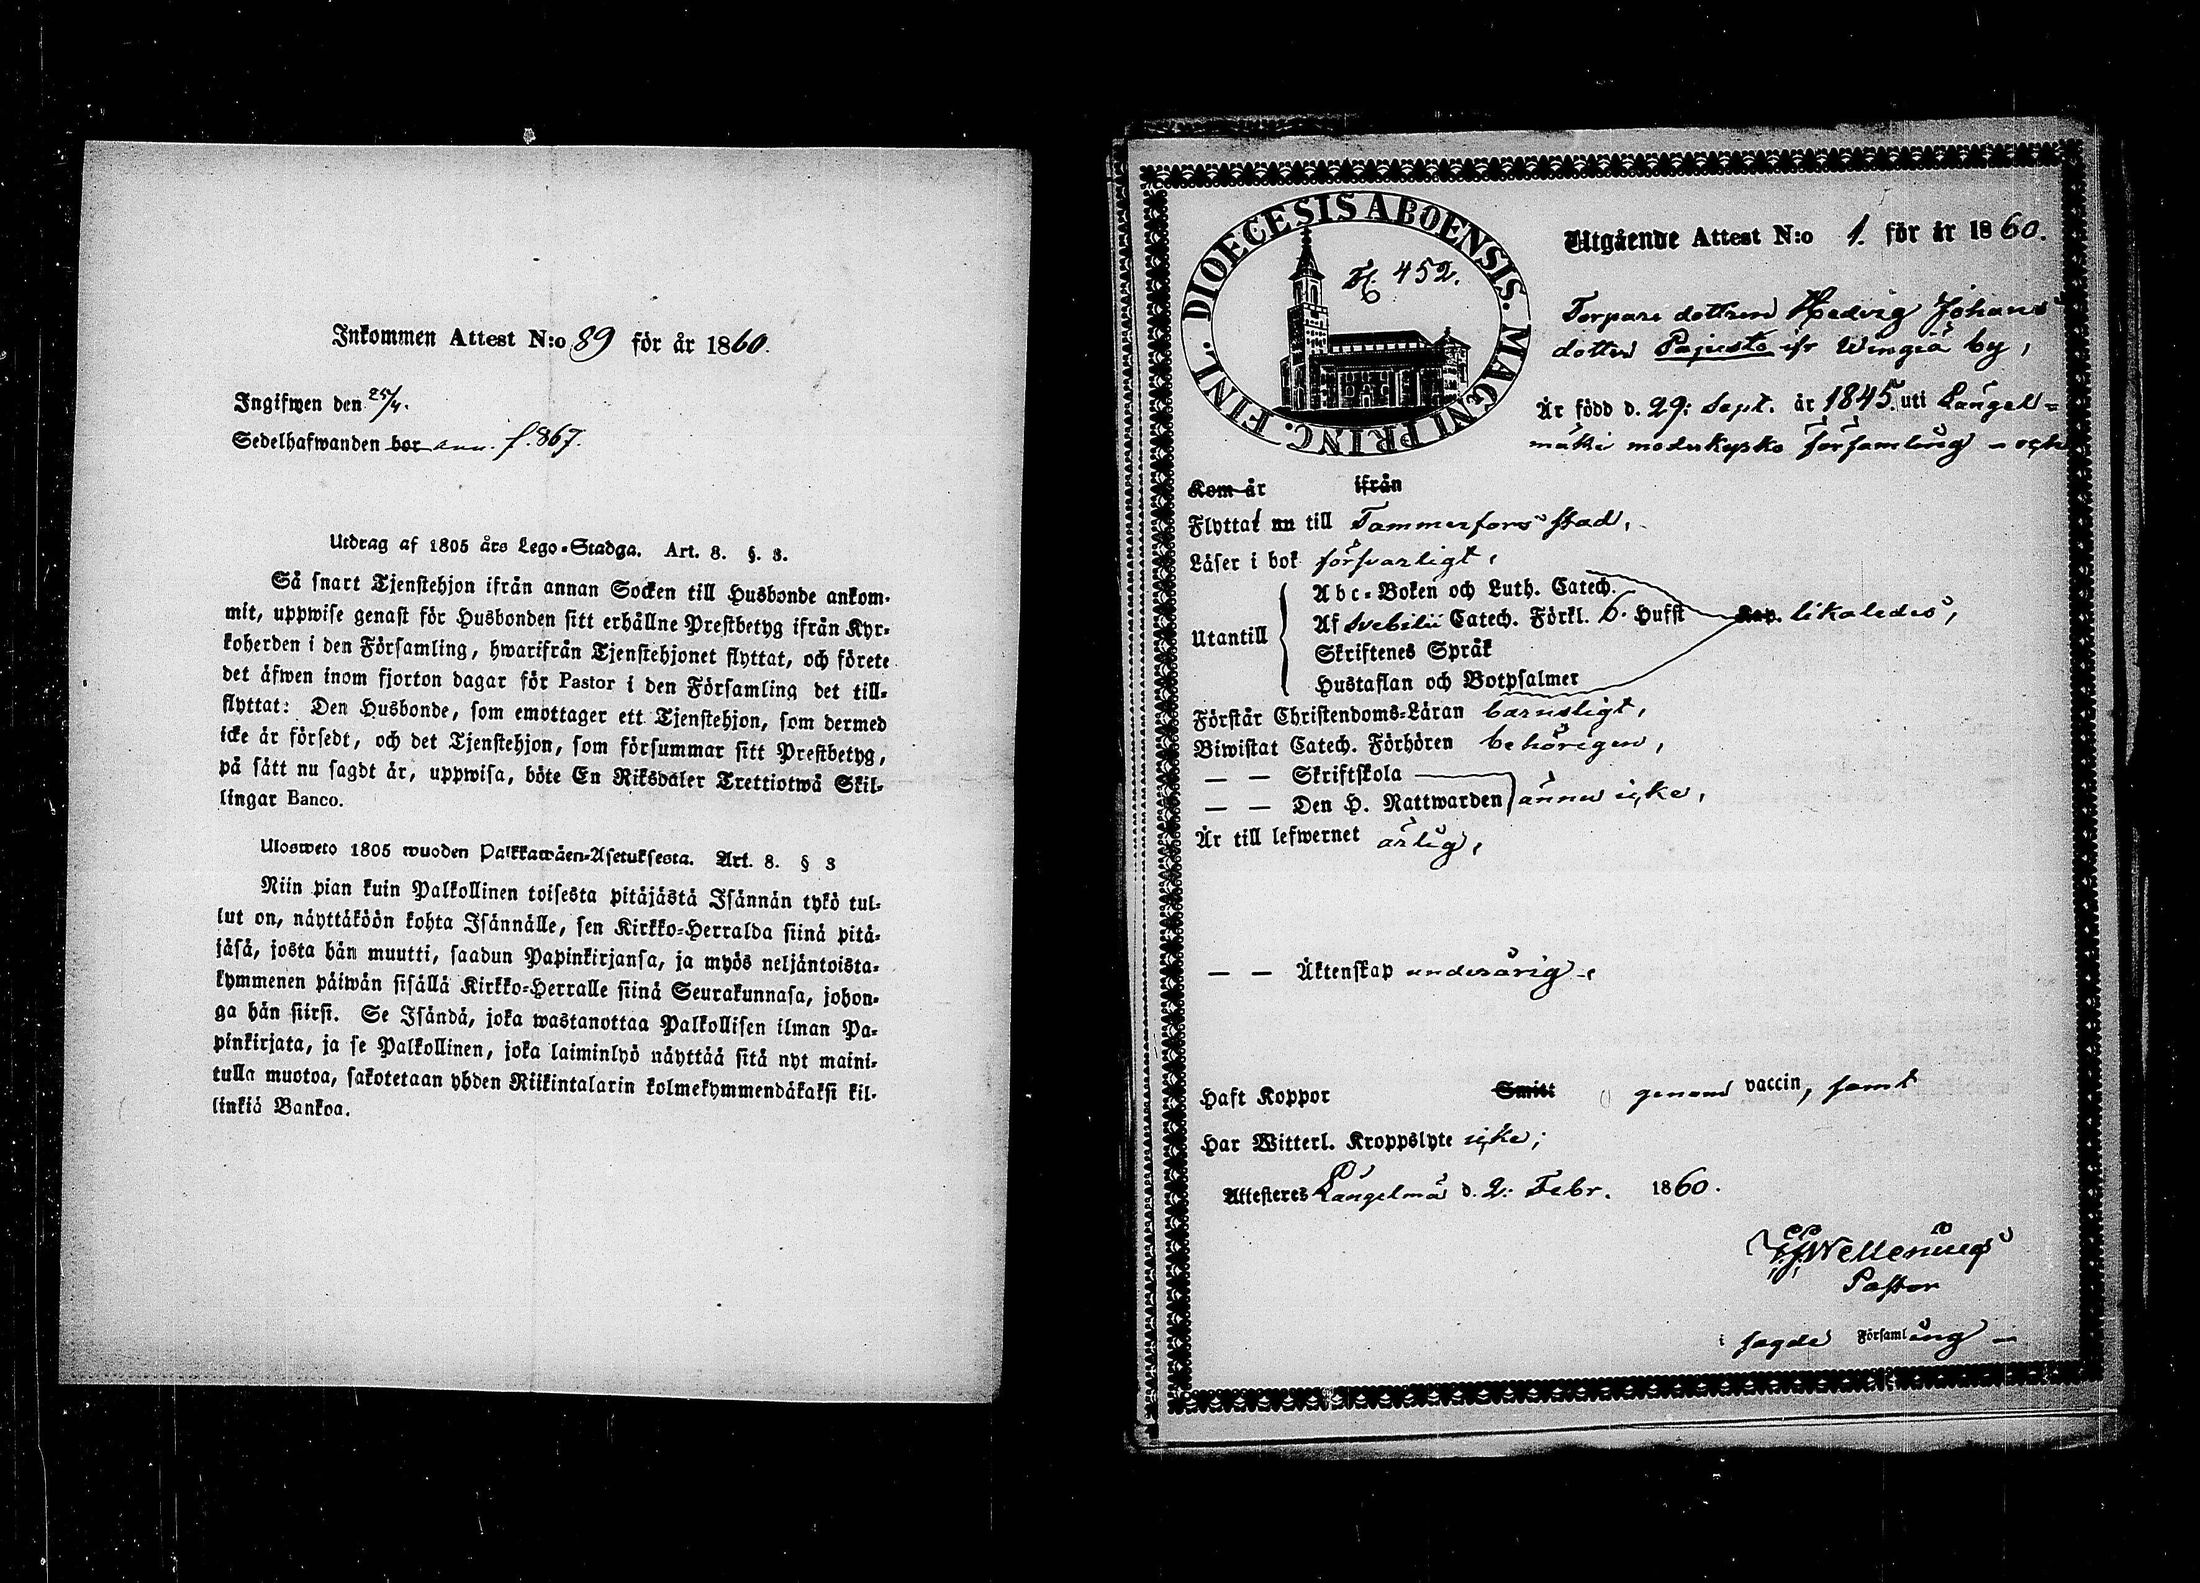 Inkommen Attest N:o 89 för år 1860.
Ingifwen den 25/4.
Sedelhafwanden bor ann. f. 867.
Utdrag af 1805 års Lego-Stadga. Art. 8. §. 3.
Så snart Tjenstehjon ifrån annan Socken till Husbonde ankom-
mit, uppwise genast för Husbonden sitt erhållne Prestbetyg ifrån Kyr-
koherden i den Församling, hwarifrån Tjenstehjonet flyttat, och förete
det äfwen inom fjorton dagar för Pastor i den Församling det till-
flyttat: Den Husbonde, som emottager ett Tjenstehjon, som dermed
icke är försedt, och det Tjenstehjon, som försummar sitt Prestbetyg,
på sätt nu sagdt är, uppwisa, böte En Riksdaler Trettiotwå Skil-
lingar Banco.
Ulosweto 1805 wuoden Palkkawäen-Asetuksesta. Art. 8. § 3
Niin pian kuin Palkollinen toisesta pitäjästä Isännän tykö tul-
lut on, näyttäköön kohta Isännälle, sen Kirkko-Herralda siinä pitä-
jäsä, josta hän muutti, saadun Papinkirjansa, ja myös neljäntoista-
kymmenen päiwän sisällä Kirkko-Herralle siinä Seurakunnasa, johon-
ga hän siirsi. Se Isändä, joka wastanottaa Palkollisen ilman Pa-
pinkirjata, ja se Palkollinen, joka laiminlyö näyttää sitä nyt maini-
tulla muotoa, sakotetaan yhden Riikintalarin kolmekymmendäkaksi kil-
linkiä Bankoa.
DIOECESIS ABOENSIS. MAGNI PRINC. FINL.
452.
Utgående Attest N:o 1. för år 1860.
Torpare dottren Hedvig Johans
dotter Pajusto ifr Wingiä by,
Är född d. 29: Sept. år 1845. uti Längel-
mäki moderkyrko församling – och
Kom år ifrån
Flyttat nu till Tammerfors stad,
Läser i bok försvarligt,
Utantill
Abc-Boken och Luth. Catech.
Af Svebilii Catech. Förkl. 6. Hufst Kap. likaledes,
Skriftenes Språk
Hustaflan och Botpsalmer
Förstår Christendoms-Läran barnsligt,
Biwistat Catech. Förhören behörigen,
— — Skriftskola
— — Den H. Nattwarden ännu icke,
Är till lefwernet ärlig,
— — Äktenskap underårig –
Haft Koppor Smitt genom vaccin, samt
Har Witterl. Kroppslyte icke;
Attesteres Längelmä d. 2: Febr. 1860.
Pastor
i sagde Församling –